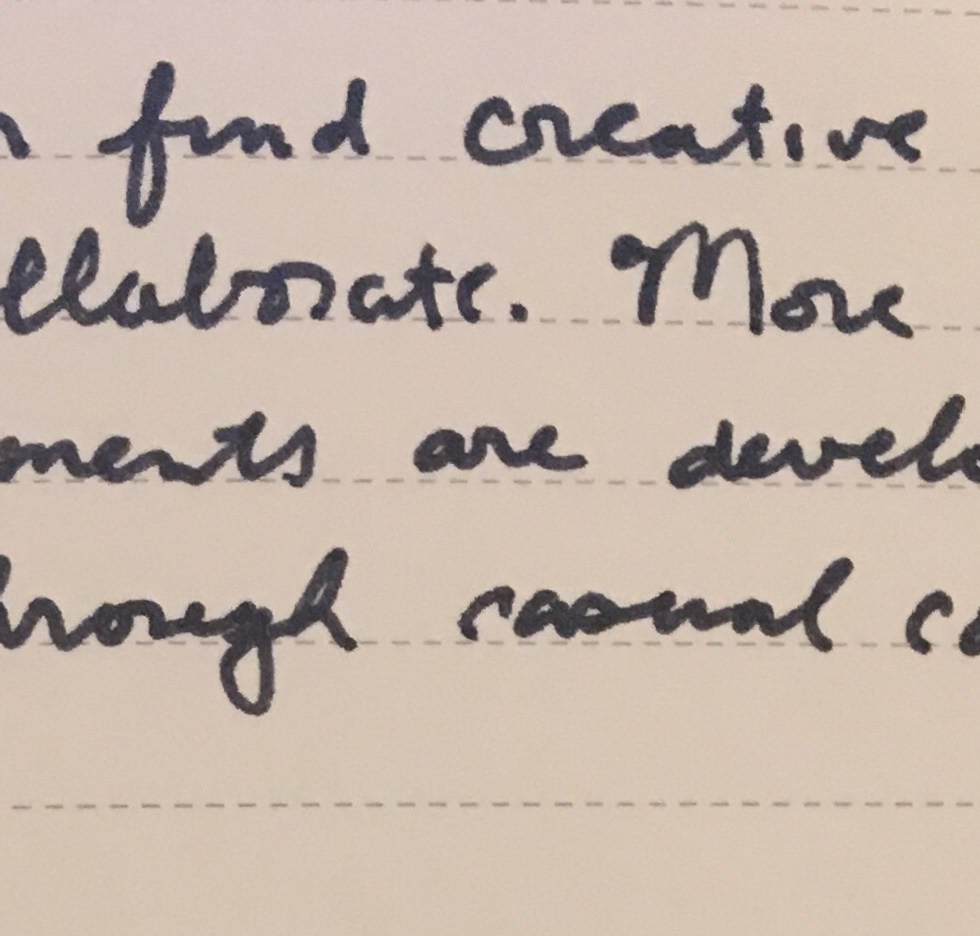 find creative
ellaborate. More
ments are develo
hrough casual co